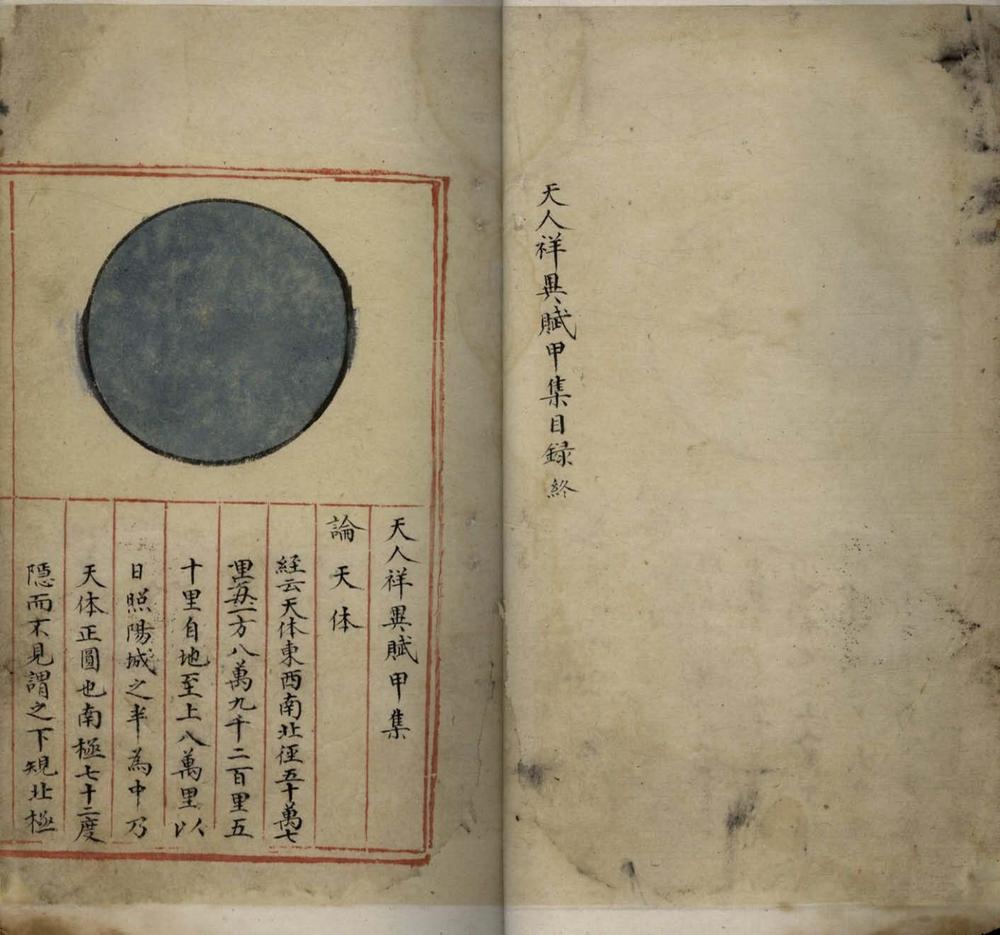 天人祥異賦甲集目録終
天人祥異賦甲集
論天体
経云天体東西南北径五十萬七
里每一方八萬九千二百里五
十里自地至上八萬里以
日照陽城之半為中乃
天体正圓也南極七十二度
隱而不見謂之下規北極